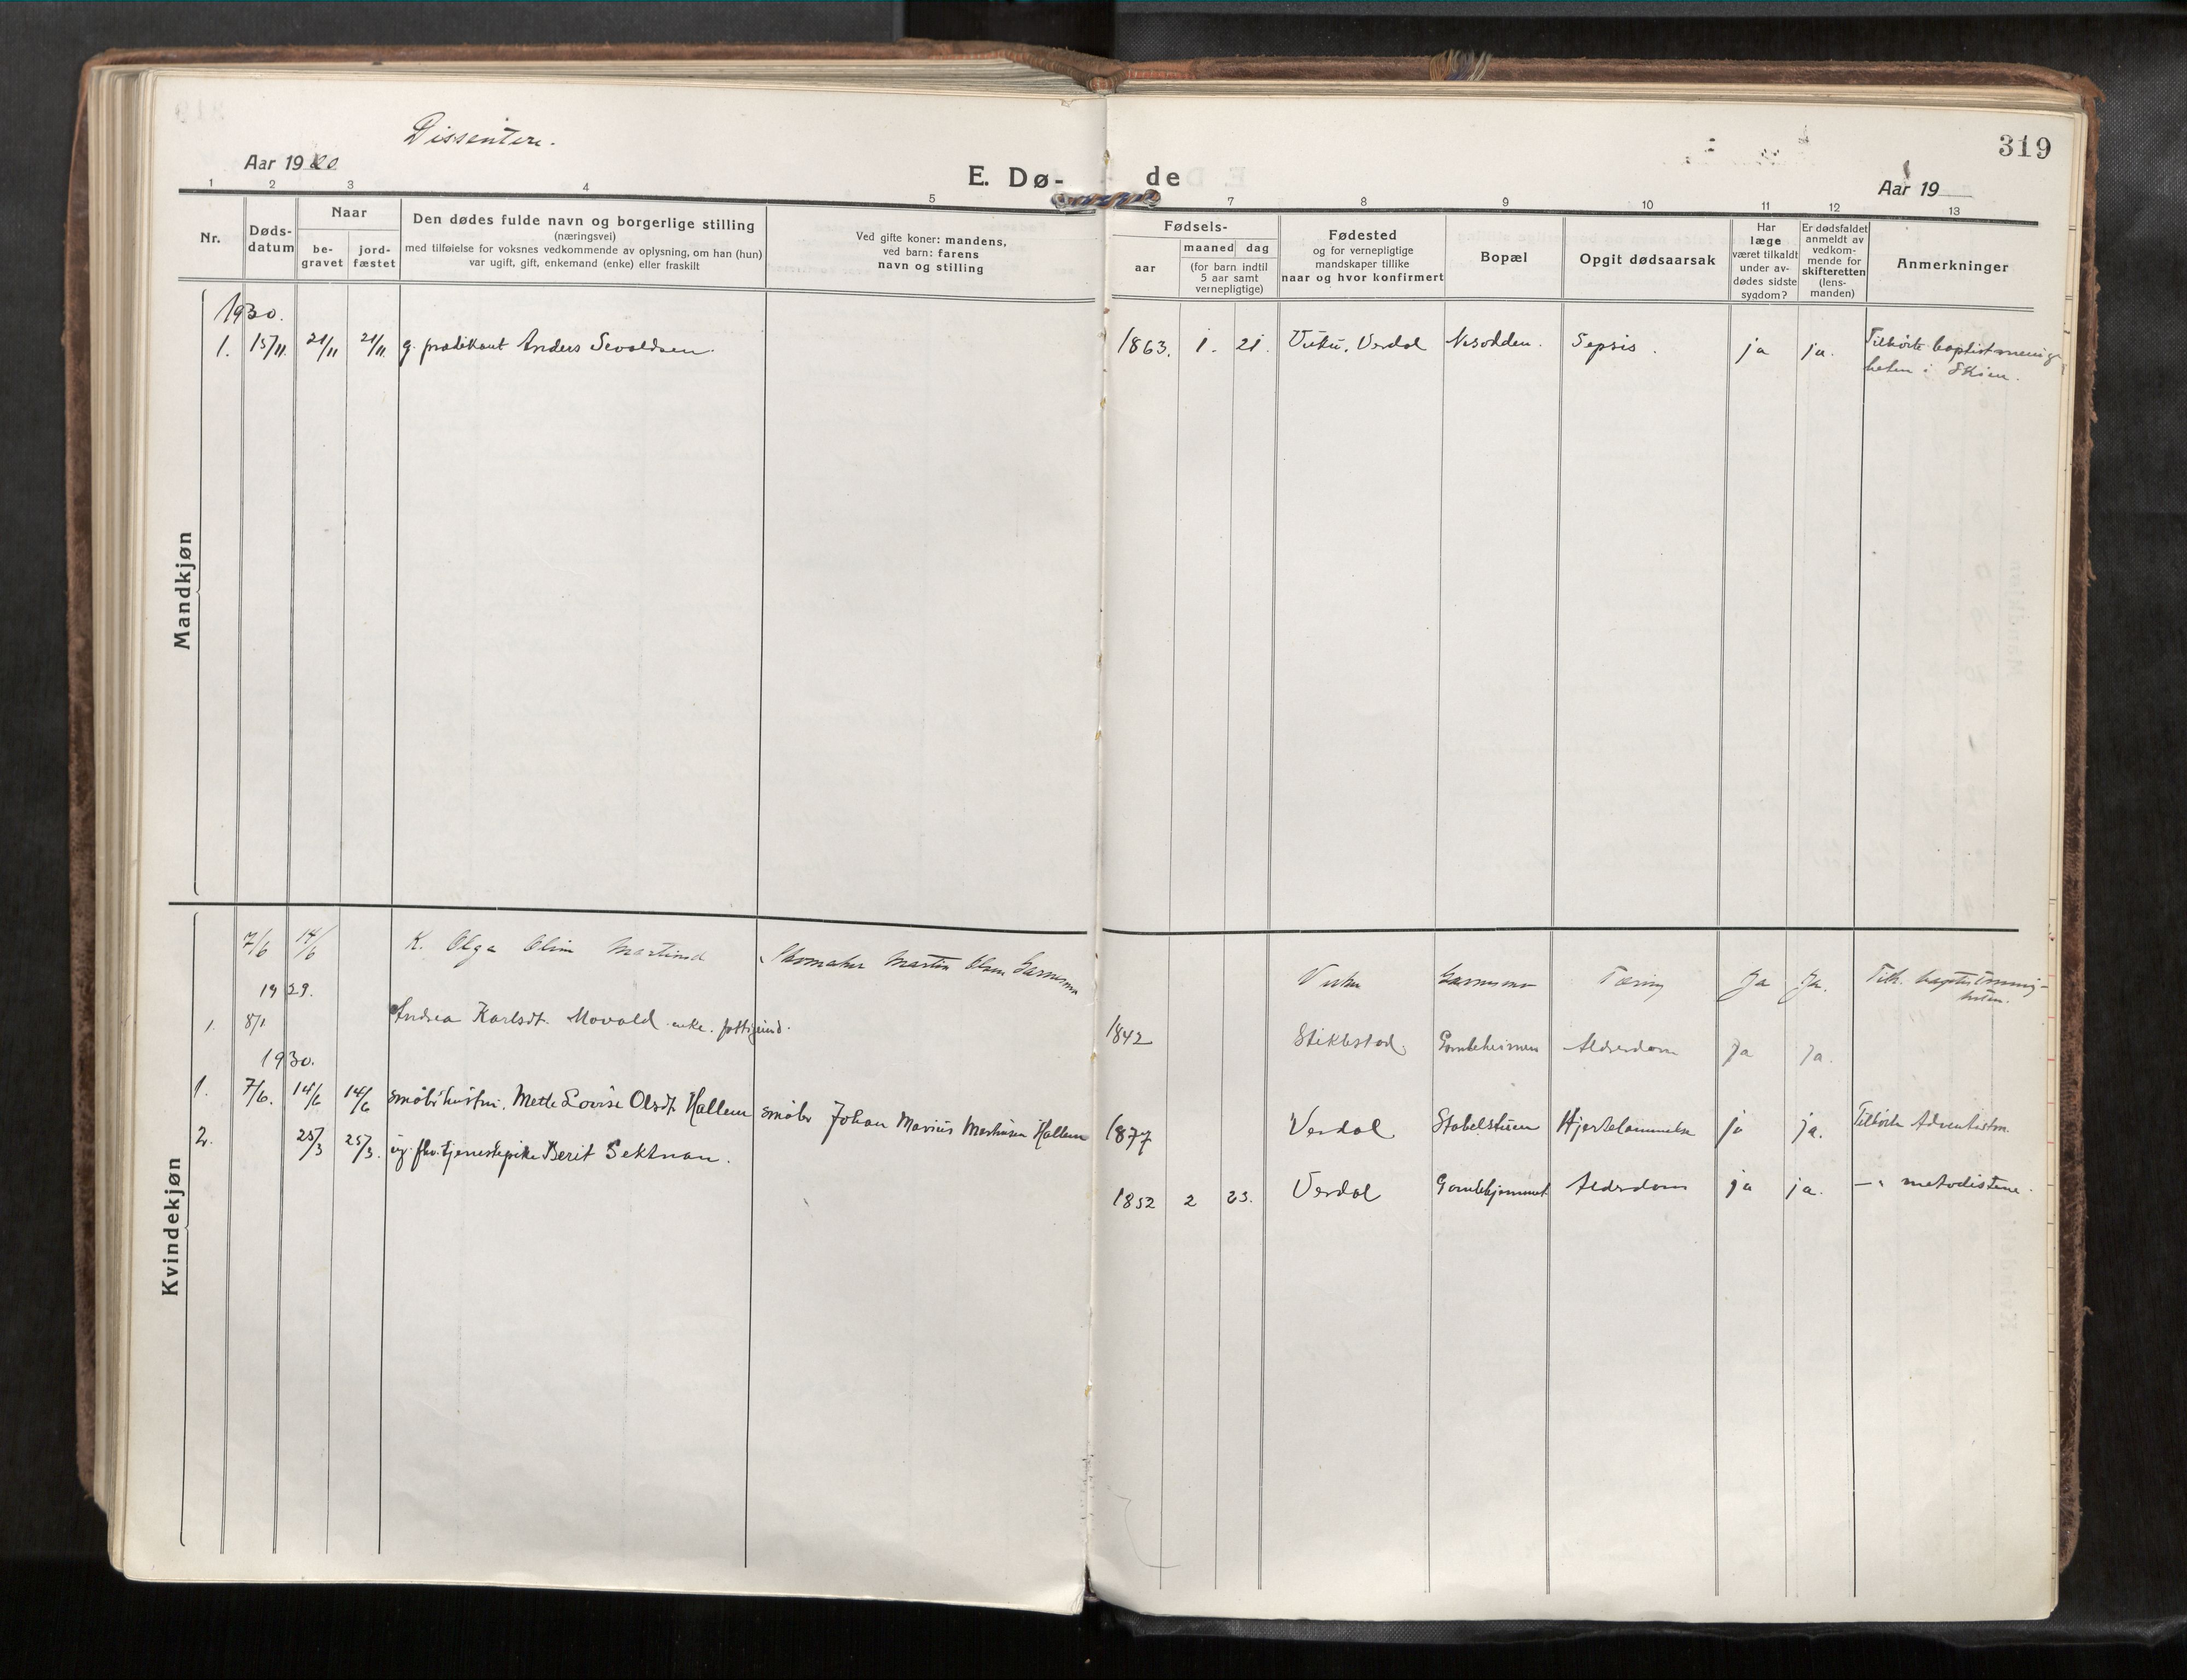 Dissentere.
319
Aar 1920
E. Dø-
de
Aar 19
1 2 3 4 5 7 8 9 10 11 12 13
Nr.
Døds-
datum
Naar
be-
gravet
jord-
fæstet
Den dødes fulde navn og borgerlige stilling
(næringsvei)
med tilføielse for voksnes vedkommende av oplysning, om han (hun)
var ugift, gift, enkemand (enke) eller fraskilt
Ved gifte koner: mandens,
ved barn: farens
navn og stilling
Fødsels-
aar
maaned dag
(for barn indtil
5 aar samt
vernepligtige)
Fødested
og for vernepligtige
mandskaper tillike
naar og hvor konfirmert
Bopæl
Opgit dødsaarsak
Har
læge
været tilkaldt
under av-
dødes sidste
sygdom?
Er dødsfaldet
anmeldt av
vedkom-
mende for
skifteretten
(lens-
manden)
Anmerkninger
Mandkjøn
1930.
1. 15/11. 21/11 21/11. g. prædikant Anders Sevaldsen. 1863. 1. 21. Vuku, Verdal Nesodden. Sepsis. ja ja. Tilhørte baptistmenig-
heten i Skien.
Kvindekjøn
7/6 14/6 K. Olga Olin Martinsd Skomaker Martin Olsen Vuku Tæring Ja Ja. Tilh. baptistmenig-
heten.
1929.
1. 8/1 Andrea Karlsdt. Movald enke. fattigund. 1842 Stiklestad. Gamleheimen Alderdom Ja Ja.
1930.
1. 7/6. 14/6 14/6 småbr. hustru. Mette Lovise Olsdt. Hallem småbr Johan Marius Martinsen Hallem 1877 Verdal Stabelstuen Hjertelammelse ja ja. Tilhørte Adventistene.
2. 25/3 25/3. ug. fhv. tjenestepike Berit Sektnan. 1852 2 23. Verdal Gamlehjemmet Alderdom ja ja. —"— metodistene.